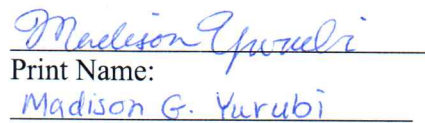 Madison Yurubi
Print Name:
Madison G. Yurubi